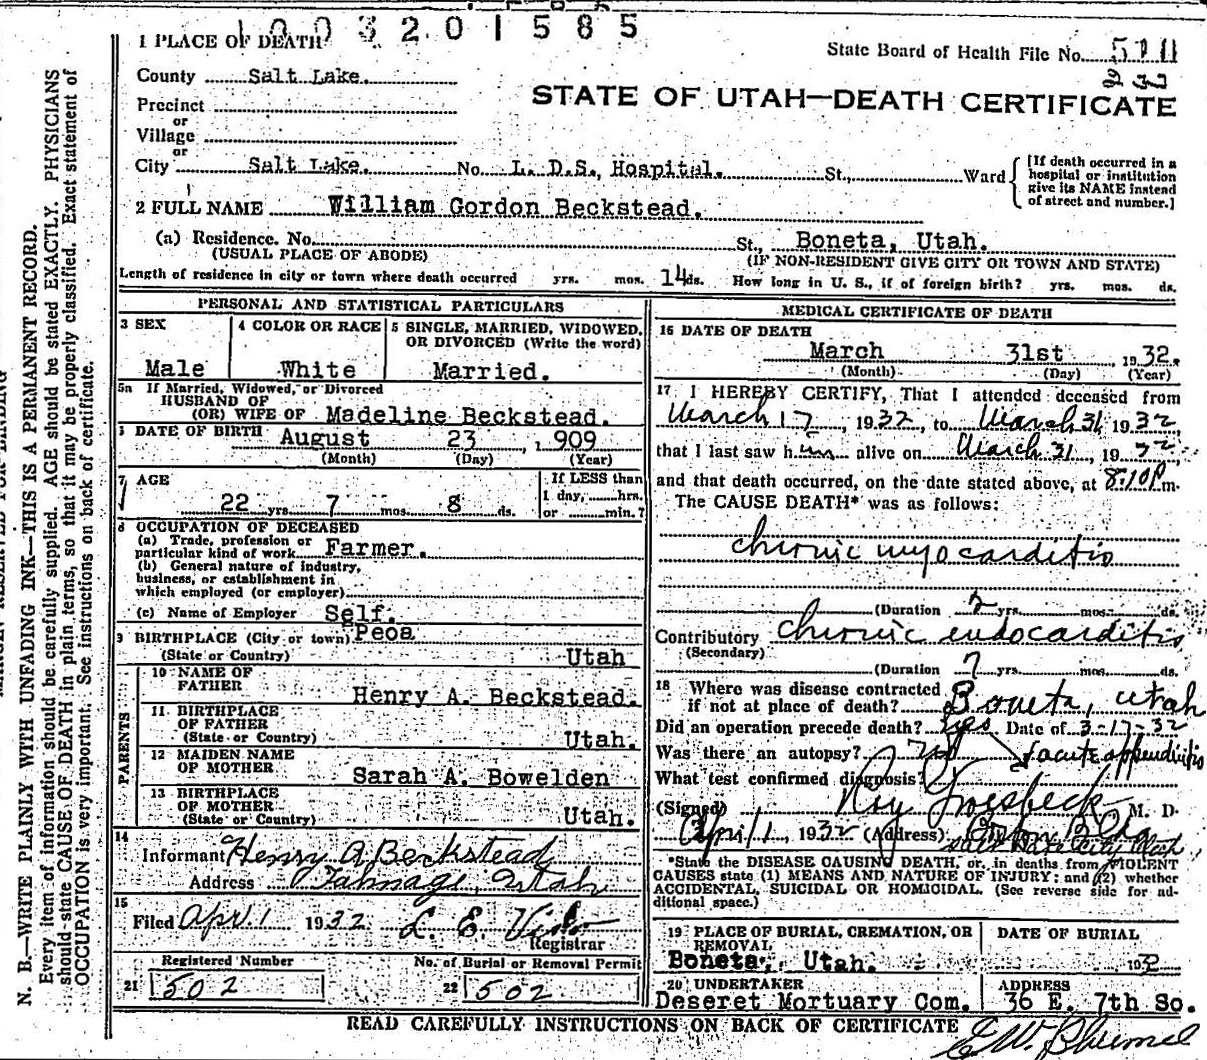 1003201585
1 PLACE OF DEATH
State Board of Health File No.
County Salt Lake.
232
STATE OF UTAH—DEATH CERTIFICATE
Precinct
or
Village
or
City Salt Lake. No. L. D.S., Hospital. St., Ward
[If death occurred in a
hospital or institution
give its NAME instead
of street and number.]
2 FULL NAME William Gordon Beckstead.
(a) Residence. No. St., Boneta, Utah.
(USUAL PLACE OF ABODE) (IF NON-RESIDENT GIVE CITY OR TOWN AND STATE)
Length of residence in city or town where death occurred yrs. mos. 14 ds. How long in U. S., if of foreign birth? yrs. mos. ds.
PERSONAL AND STATISTICAL PARTICULARS
3 SEX 4 COLOR OR RACE 5 SINGLE, MARRIED, WIDOWED,
OR DIVORCED (Write the word)
Male White Married.
5a If Married, Widowed, or Divorced
HUSBAND OF
(OR) WIFE OF Madeline Beckstead.
DATE OF BIRTH August 23, 1909
(Month) (Day) (Year)
7 AGE If LESS than
22 yrs. 7 mos. 8 ds. 1 day, hrs.
or min.?
8 OCCUPATION OF DECEASED
(a) Trade, profession or
particular kind of work Farmer.
(b) General nature of industry,
business, or establishment in
which employed (or employer)
(c) Name of Employer Self.
9 BIRTHPLACE (City or town) Peoa
(State or Country) Utah
PARENTS
10 NAME OF
FATHER Henry A. Beckstead.
11 BIRTHPLACE
OF FATHER
(State or Country) Utah.
12 MAIDEN NAME
OF MOTHER Sarah A. Bowelden
13 BIRTHPLACE
OF MOTHER
(State or Country) Utah.
14
Informant Henry A Beckstead
Address Talmage, Utah
15
Filed Apr. 1 1932 L. E.
Registrar
Registered Number No. of Burial or Removal Permit
21 502 22 502
MEDICAL CERTIFICATE OF DEATH
16 DATE OF DEATH
March 31st, 1932.
(Month) (Day) (Year)
17 I HEREBY CERTIFY, That I attended deceased from
March 17, 1932, to March 31 1932
that I last saw him alive on March 31, 1932
and that death occurred, on the date stated above, at 8:10 P m.
The CAUSE DEATH* was as follows:
chronic myocarditis
(Duration 2 yrs. mos. ds.
Contributory chronic endocarditis
(Secondary)
(Duration 7 yrs. mos. ds.
18 Where was disease contracted
if not at place of death? Boneta, Utah
Did an operation precede death? Yes Date of 3-17-32
Was there an autopsy? no acute appendicitis
What test confirmed diagnosis?
(Signed) Roy Groesbeck M. D.
April 1, 1932 (Address)
*State the DISEASE CAUSING DEATH, or, in deaths from VIOLENT
CAUSES state (1) MEANS AND NATURE OF INJURY; and (2) whether
ACCIDENTAL, SUICIDAL OR HOMICIDAL. (See reverse side for ad-
ditional space.)
19 PLACE OF BURIAL, CREMATION, OR
REMOVAL
Boneta, Utah.
DATE OF BURIAL
1932
20 UNDERTAKER ADDRESS
Deseret Mortuary Com. 36 E. 7th So.
READ CAREFULLY INSTRUCTIONS ON BACK OF CERTIFICATE
N. B.—WRITE PLAINLY WITH UNFADING INK—THIS IS A PERMANENT RECORD.
Every item of information should be carefully supplied. AGE should be stated EXACTLY. PHYSICIANS
should state CAUSE OF DEATH in plain terms, so that it may be properly classified. Exact statement of
OCCUPATION is very important. See instructions on back of certificate.